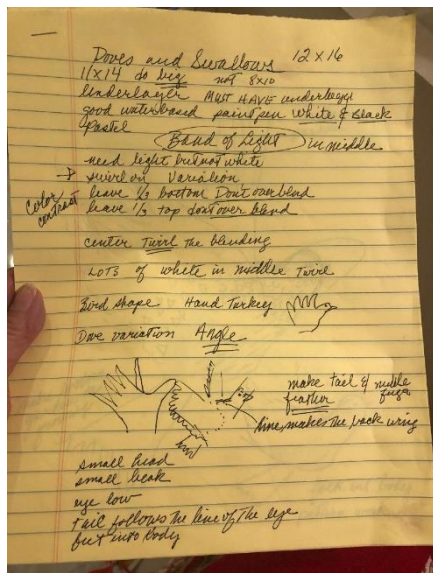 Doves and Swallows 12 x 16
11x14 to big not 8x10
Underlayer MUST HAVE underlayer
good waterbased paint pen white & Black
Pastel
Band of Light in middle
need light but not white
→ swirl on Variation
color contrast
leave 1/3 bottom Dont over blend
leave 1/3 top dont over blend
center Twirl the blending
LOTS of white in middle Twirl
Bird shape Hand Turkey
Dove variation Angle
make tail & middle finger
feather
line, makes the back wing
small head
small beak
eye low
tail follows the line of the eye
but into body